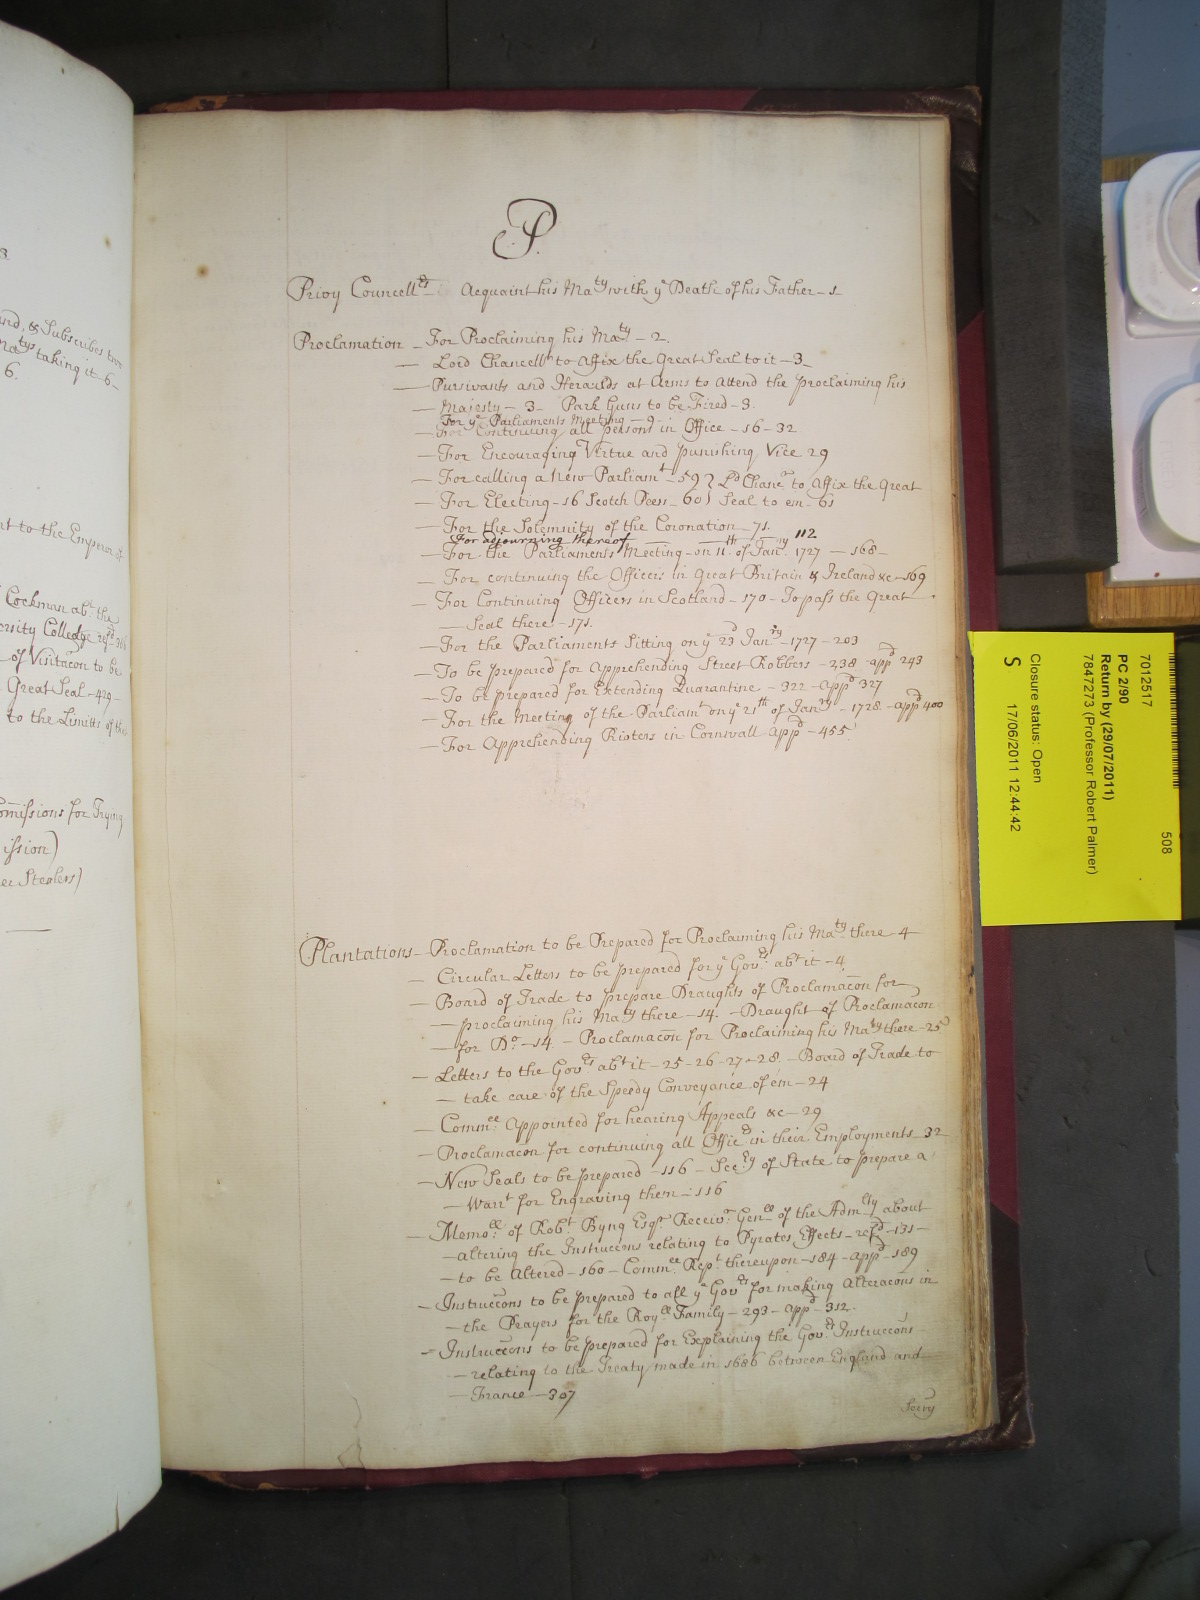 P.
Privy Councell.rs – Acquaint his Ma.ty with y.e Death of his Father – 1
Proclamation – For Proclaiming his Ma.ty – 2.
— Lord Chancell.r to Affix the Great Seal to it – 3 –
— Pursivants and Heraulds at Arms to Attend the proclaiming his
— Majesty – 3 – Park Guns to be Fired – 3.
For y.e Parliaments Meeting – 9 –
– For Continuing all persons in Office – 16 – 32
– For Encouraging Virtue and punishing Vice 29
– For calling a New Parliam.t – 59 } L.d Chanc.r to Affix the Great
– For Electing – 16 Scotch Peers – 60 } Seal to em – 61
– For the Solemnity of the Coronation – 71.
For adjourning thereof — — — 112
– For the Parliaments Meeting – on 11.th of Jan.ry 1727 – 168 –
– For continuing the Officers in Great Britain & Ireland &c – 169
– For Continuing Officers in Scotland – 170 – To pass the Great
— Seal there – 171.
– For the Parliaments Sitting on y.e 23.d Jan.ry – 1727 – 203
– To be prepared for Apprehending Street Robbers – 238 – app.d 243
– To be prepared for Extending Quarantine – 322 – App.d 327
– For the Meeting of the Parliam.t on y.e 21.th of Jan.ry – 1728 – app.d 400
– For Apprehending Rioters in Cornwall app.d – 455
Plantations – Proclamation to be Prepared for Proclaiming his Ma.ty there – 4
– Circular Letters to be prepared for y.e Gov.rs ab.t it – 4.
– Board of Trade to prepare Draughts of Proclamacon for
— proclaiming his Ma.ty there – 14. – Draught of Proclamacon
— for D.o – 14. – Proclamacon for Proclaiming his Ma.ty there – 25
– Letters to the Gov.rs ab.t it – 25 – 26 – 27 – 28. – Board of Trade to
– take care of the Speedy Conveyance of em – 24
– Comm.ee Appointed for hearing Appeals &c – 29
– Proclamacon for continuing all Offic.rs in their Employments 32
– New Seals to be prepared – 116 – Sec.ry of State to prepare a
– Warr.t for Engraving them – 116
– Memo.ll of Rob.t Byng Esq.r Receiv.r Gen.ll of the Adm.lty about
– altering the Instruccons relating to Pyrates Effects – ref.d – 131 –
– to be Altered – 160 – Comm.ee Rep.t thereupon – 184 – App.d 189
– Instruccons to be prepared to all y.e Gov.rs for making Alteracons in
– the Prayers for the Roy.ll Family – 293 – app.d – 312.
– Instruccons to be prepared for Explaining the Gov.rs Instruccons
– relating to the Treaty made in 1686 between England and
– France – 307
3.
and, & Subscribes two
tys taking it 6 –
6.
nt to the Emperor of
Cockman ab.t the
ersity Colledge
of Visitacon to be
Great Seal – 429 –
to the Limitts of the
omissions for Trying
ission)
er Stealers)
7012517
508
PC 2/90
Return by (29/07/2011)
7847273 (Professor Robert Palmer)
Closure status: Open
S 17/06/2011 12:44:42